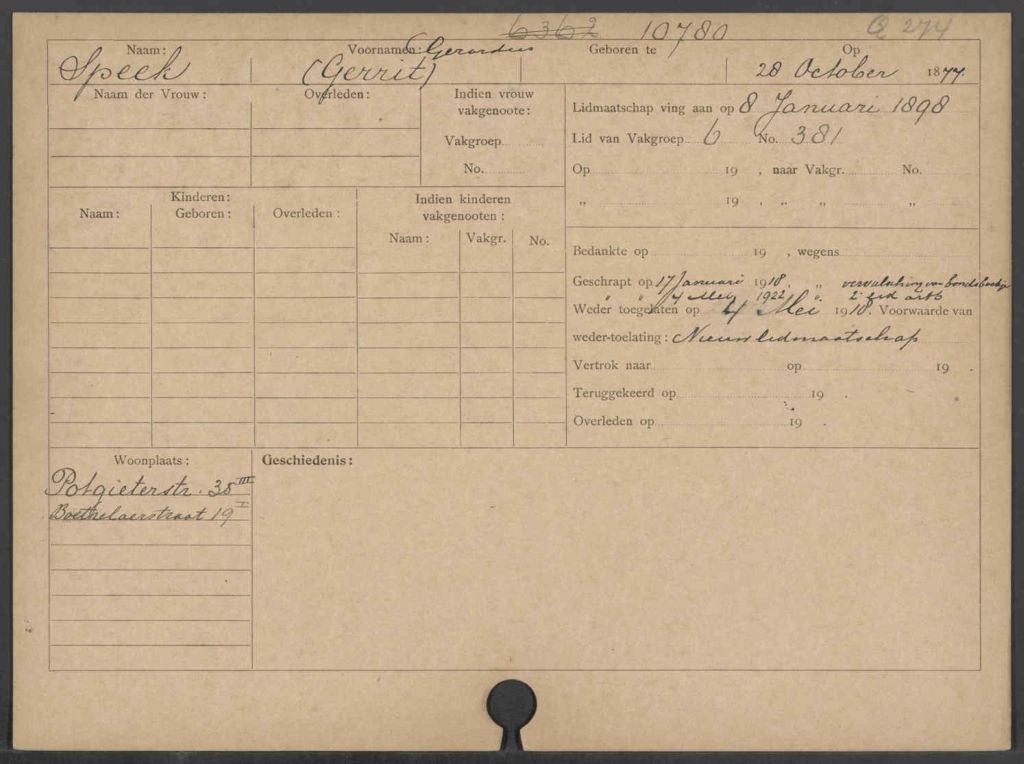 6362 10780 Q 274
Naam: Voornamen: Gerardus Geboren te Op
Speek (Gerrit) 28 October 1877.
Naam der Vrouw: Overleden: Indien vrouw vakgenoote:
Vakgroep
No.
Lidmaatschap ving aan op 8 Januari 1898
Lid van Vakgroep 6 No. 381
Op 19 , naar Vakgr. No.
„ 19 , „ „ „
Kinderen:
Naam: Geboren: Overleden: Indien kinderen vakgenooten:
Naam: Vakgr. No.
Bedankte op 19 , wegens
Geschrapt op 17 Januari 1918. „
„ „ 4 Mei 1922 „ 2e lid art 6
Weder toegelaten op 4 Mei 1918. Voorwaarde van
weder-toelating: Nieuw lidmaatschap
Vertrok naar op 19 .
Teruggekeerd op 19 .
Overleden op 19 .
Woonplaats: Geschiedenis:
Potgieterstr. 38 III
19 I